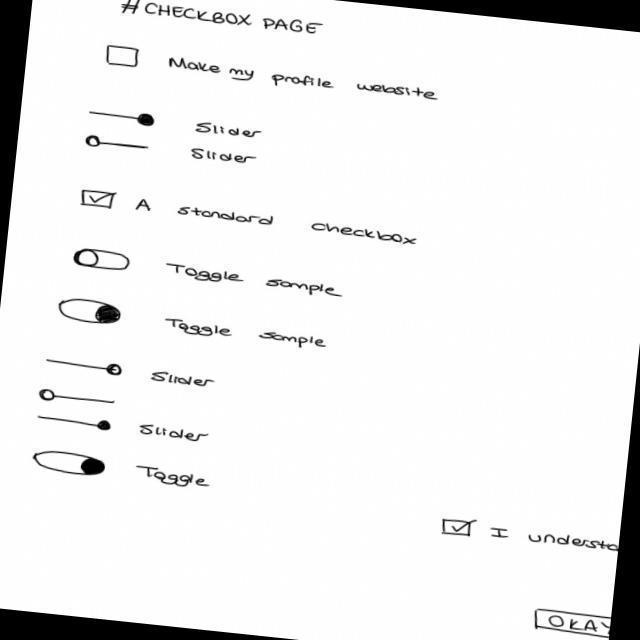 #CHECKBOX PAGE
Make my profile website
Slider
Slider
A standard checkbox
Toggle sample
Toggle sample
Slider
Slider
Toggle
I understa
OKAY